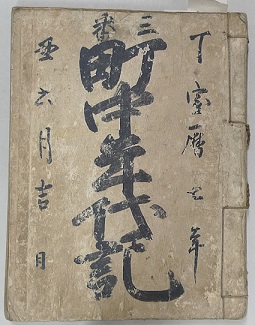 丁寳暦七年
三番
町中年代記
丑六月吉日